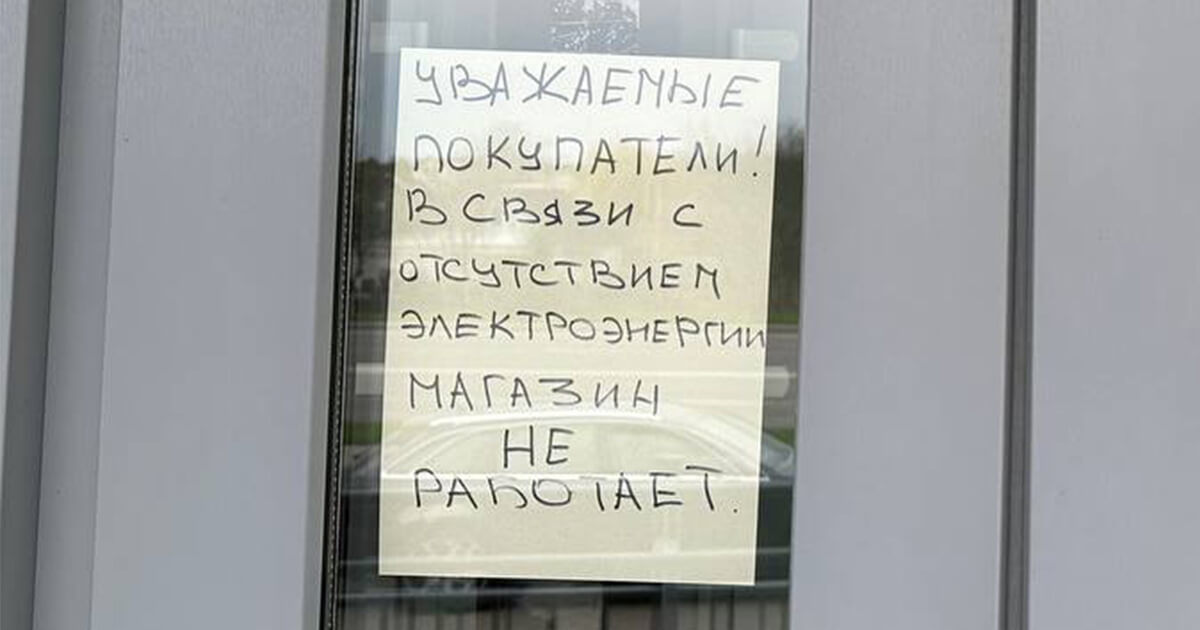 УВАЖАЕМЫЕ
ПОКУПАТЕЛИ!
В СВЯЗИ С
ОТСУТСТВИЕМ
ЭЛЕКТРОЭНЕРГИИ
МАГАЗИН
НЕ
РАБОТАЕТ.